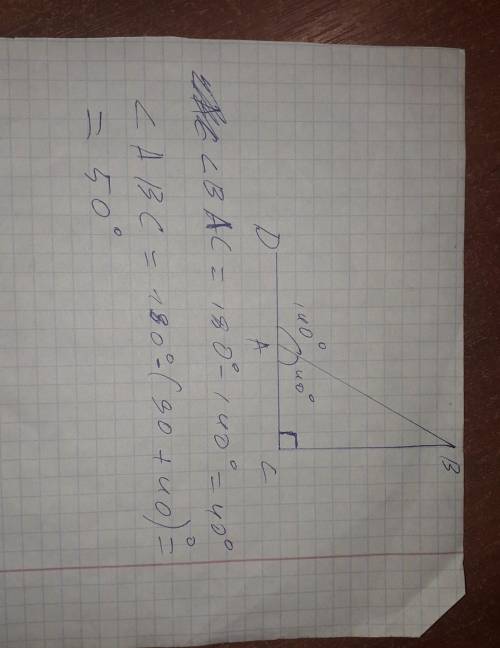 B
140°
40°
D
A
C
∠BAC = 180° - 140° = 40°
∠ABC = 180° - (90 + 40)° =
= 50°